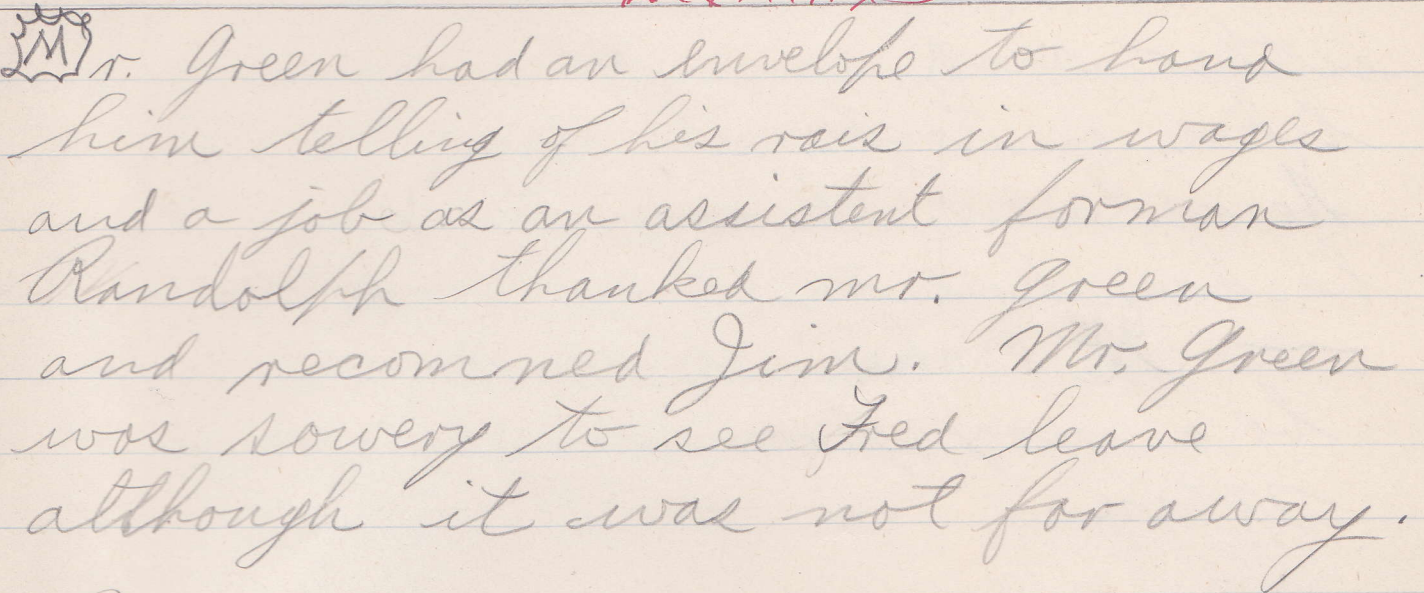 Mr. Green had an envelope to hand
him telling of his rais in wages
and a job as an assistent forman
Randolph thanked mr. Green
and recomned Jim. Mr. Green
was sowery to see Fred leave
although it was not far away.